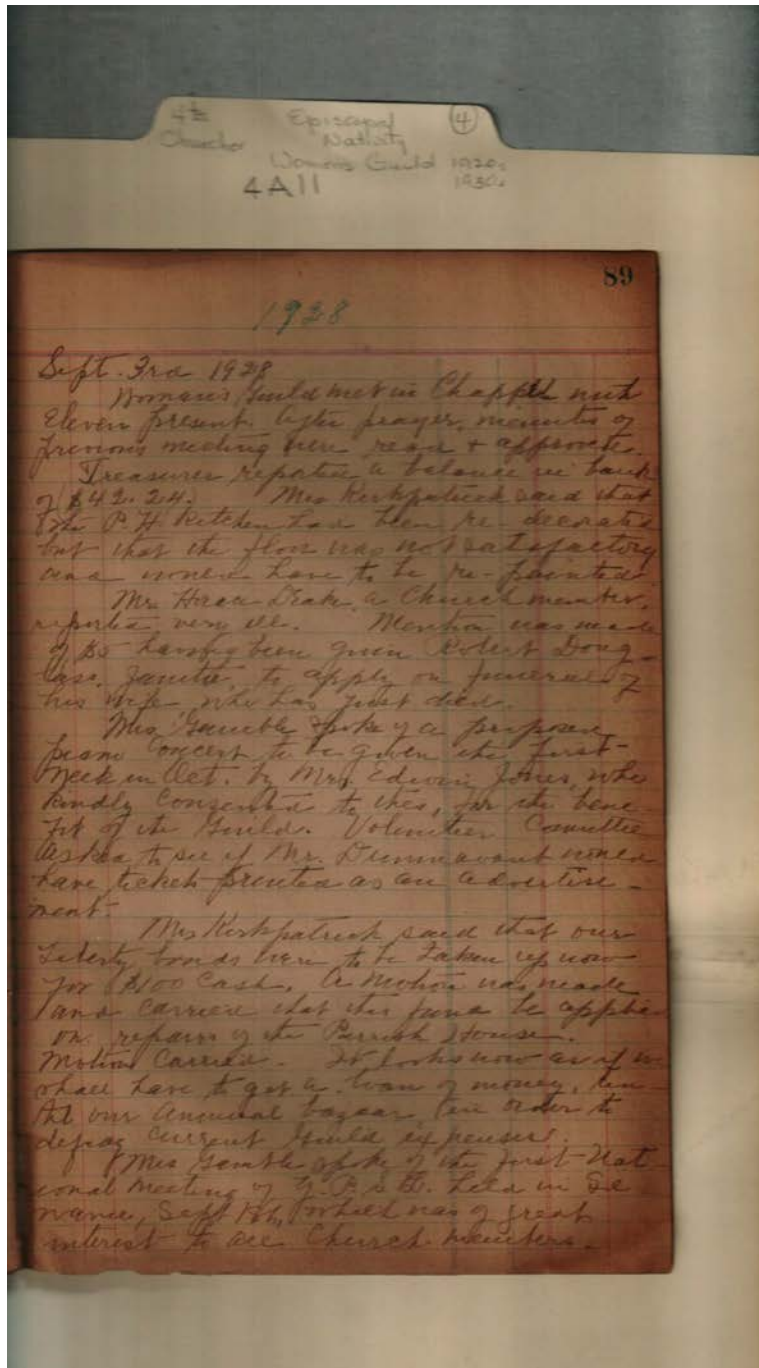 4th Episcopal ④
Churches Nativity
Womens Guild 1920s
4A11 1930s
89
1928
Sept. 3rd 1928
Woman's Guild met in Chappel with
Eleven present. After prayer, minutes of
previous meeting were read & approved.
Treasurer reported a balance in bank
of $42.24. Mrs Kirkpatrick said that
the P. H Kitchen had been re-decorated
but that the floor was not satisfactory
and would have to be re-painted.
Mr. Horace Drake, a Church member,
reported very ill. Mention was made
of $5 having been given Robert Doug-
lass, Janitor, to apply on funeral of
his wife, who has just died.
Mrs Gamble spoke of a proposed
piano concert to be given the first
week in Oct. by Mrs. Edwin Jones, who
kindly consented to this, for the bene-
fit of the Guild. Volunteer Comittee
asked to see if Mr. Dunnavant would
have tickets printed as an advertise-
ment.
Mrs Kirkpatrick said that our
Liberty bonds were to be taken up now
for $100 cash. A motion was made
and carried that this fund be applied
on repairs of the Parrish House.
Motion Carried. It looks now as if we
shall have to get a loan of money, un-
til our annual bazaar in order to
defray current Guild expenses.
Mrs Gamble spoke of the first Nat-
ional meeting of Y.P.S.L. held in Se
wanee, Sept which was of great
interest to all Church members.